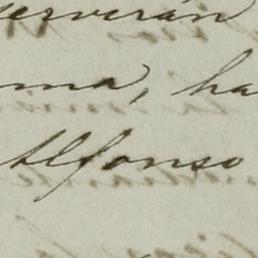 serverán
ma, ha
Alfonso